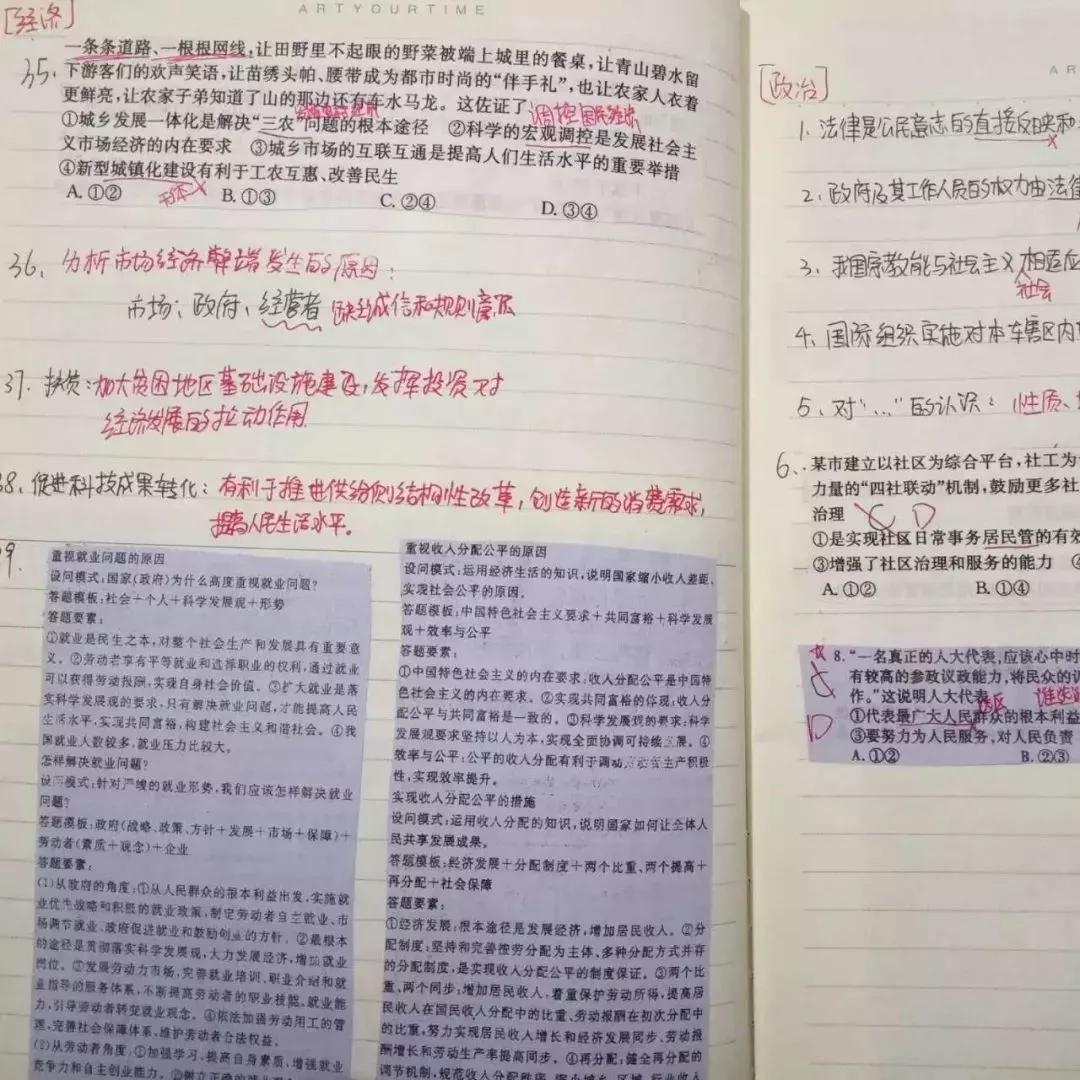 ARTYOURTIME
[经济]
35.
一条条道路、一根根网线,让田野里不起眼的野菜被端上城里的餐桌,让青山碧水留
下游客们的欢声笑语,让苗绣头帕、腰带成为都市时尚的“伴手礼”,也让农家人衣着
更鲜亮,让农家子弟知道了山的那边还有车水马龙。这佐证了
调控国民经济
①城乡发展一体化是解决“三农”问题的根本途径 ②科学的宏观调控是发展社会主
义市场经济的内在要求 ③城乡市场的互联互通是提高人们生活水平的重要举措
④新型城镇化建设有利于工农互惠、改善民生
A. ①② B. ①③ C. ②④ D. ③④
36. 分析市场经济弊端发生的原因:
市场; 政府; 经营者 缺乏诚信和规则意识
37. 扶贫:加大贫困地区基础设施建设,发挥投资对
经济发展的拉动作用
38. 促进科技成果转化:有利于推进供给侧结构性改革,创造新的消费需求,
提高人民生活水平。
39.
重视就业问题的原因
设问模式:国家(政府)为什么高度重视就业问题?
答题模板:社会+个人+科学发展观+形势
答题要素:
①就业是民生之本,对整个社会生产和发展具有重要意
义。②劳动者享有平等就业和选择职业的权利,通过就业
可以获得劳动报酬,实现自身社会价值。③扩大就业是落
实科学发展观的要求,只有解决就业问题,才能提高人民
生活水平,实现共同富裕,构建社会主义和谐社会。④我
国就业人数较多,就业压力比较大。
怎样解决就业问题?
设问模式:针对严峻的就业形势,我们应该怎样解决就业
问题?
答题模板:政府(战略、政策、方针+发展+市场+保障)+
劳动者(素质+观念)+企业
答题要素:
(1)从政府的角度:①从人民群众的根本利益出发,实施就
业优先战略和积极的就业政策,制定劳动者自主就业、市
场调节就业、政府促进就业和鼓励创业的方针。②最根本
的途径是贯彻落实科学发展观,大力发展经济,增加就业
岗位。③发展劳动力市场,完善就业培训、职业介绍和就
业指导的服务体系,不断提高劳动者的职业技能、就业能
力,引导劳动者转变就业观念。④依法加强劳动用工的管
理,完善社会保障体系,维护劳动者合法权益。
(2)从劳动者角度:①加强学习,提高自身素质,增强就业
竞争力和自主创业能力。②树立正确的
重视收入分配公平的原因
设问模式:运用经济生活的知识,说明国家缩小收入差距、
实现社会公平的原因。
答题模板:中国特色社会主义要求+共同富裕+科学发展
观+效率与公平
答题要素:
①中国特色社会主义的内在要求,收入分配公平是中国特
色社会主义的内在要求。②实现共同富裕的体现:收入分
配公平与共同富裕是一致的。③科学发展观的要求:科学
发展观要求坚持以人为本,实现全面协调可持续发展。④
效率与公平:公平的收入分配有利于调动劳动者生产积极
性,实现效率提升。
实现收入分配公平的措施
设问模式:运用收入分配的知识,说明国家如何让全体人
民共享发展成果。
答题模板:经济发展+分配制度+两个比重、两个提高+
再分配+社会保障
答题要素:
①经济发展:根本途径是发展经济,增加居民收入。②分
配制度:坚持和完善按劳分配为主体、多种分配方式并存
的分配制度,是实现收入分配公平的制度保证。③两个比
重、两个同步:增加居民收入,着重保护劳动所得,提高居
民收入在国民收入分配中的比重、劳动报酬在初次分配中
的比重,努力实现居民收入增长和经济发展同步、劳动报
酬增长和劳动生产率提高同步。④再分配:健全再分配的
调节机制,规范收入分配秩序,缩小城乡、区域、行业收入
AR
[政治]
1. 法律是公民意志的直接反映和
2. 政府及其工作人员的权力由法律
3. 我国宗教能与社会主义相适应
社会
4. 国际组织实施对本车辖区内
5. 对“…”的认识: 性质、
6.
某市建立以社区为综合平台,社工为
力量的“四社联动”机制,鼓励更多社
治理 C D
①是实现社区日常事务居民管的有效
③增强了社区治理和服务的能力
A. ①② B. ①④
8. “一名真正的人大代表,应该心中时
有较高的参政议政能力,将民众的
作。”这说明人大代表
选区 谁选
①代表最广大人民群众的根本利益
③要努力为人民服务,对人民负责
A. ①② B. ②③
D